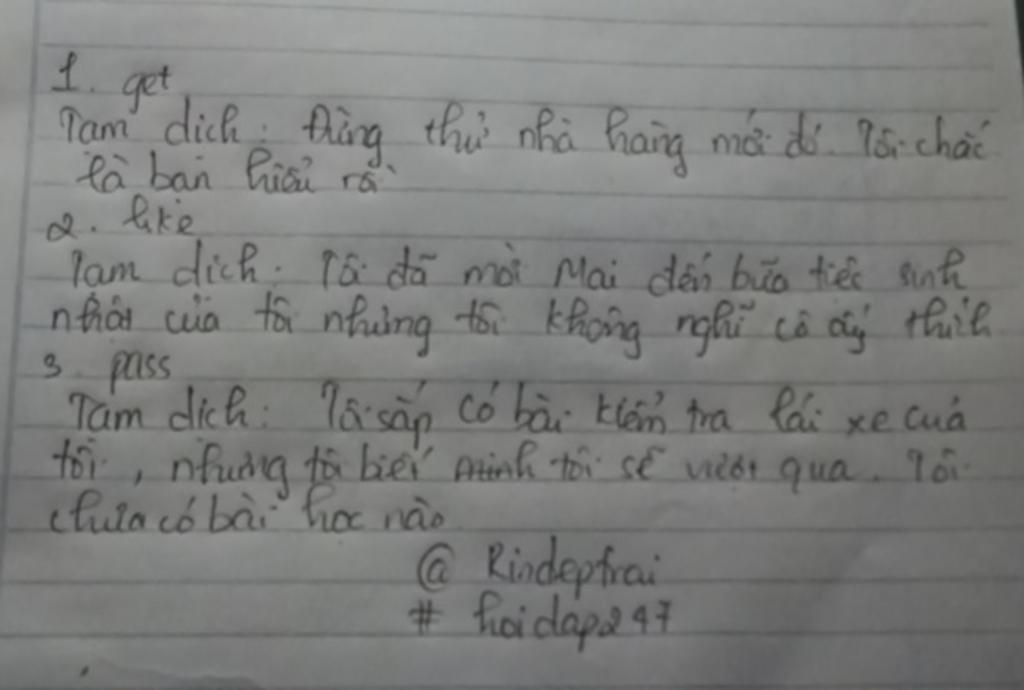 1. get
Tạm dịch: Đừng thử nhà hàng mới đó. Tôi chắc
là bạn hiểu rồi
2. like
Tạm dịch: Tôi đã mời Mai đến bữa tiệc sinh
nhật của tôi nhưng tôi không nghĩ cô ấy thích
3 pass
Tạm dịch: Tôi sắp có bài kiểm tra lái xe của
tôi, nhưng tôi biết mình tôi sẽ vượt qua. Tôi
chưa có bài học nào
@ Rindeptrai
# hoidap247